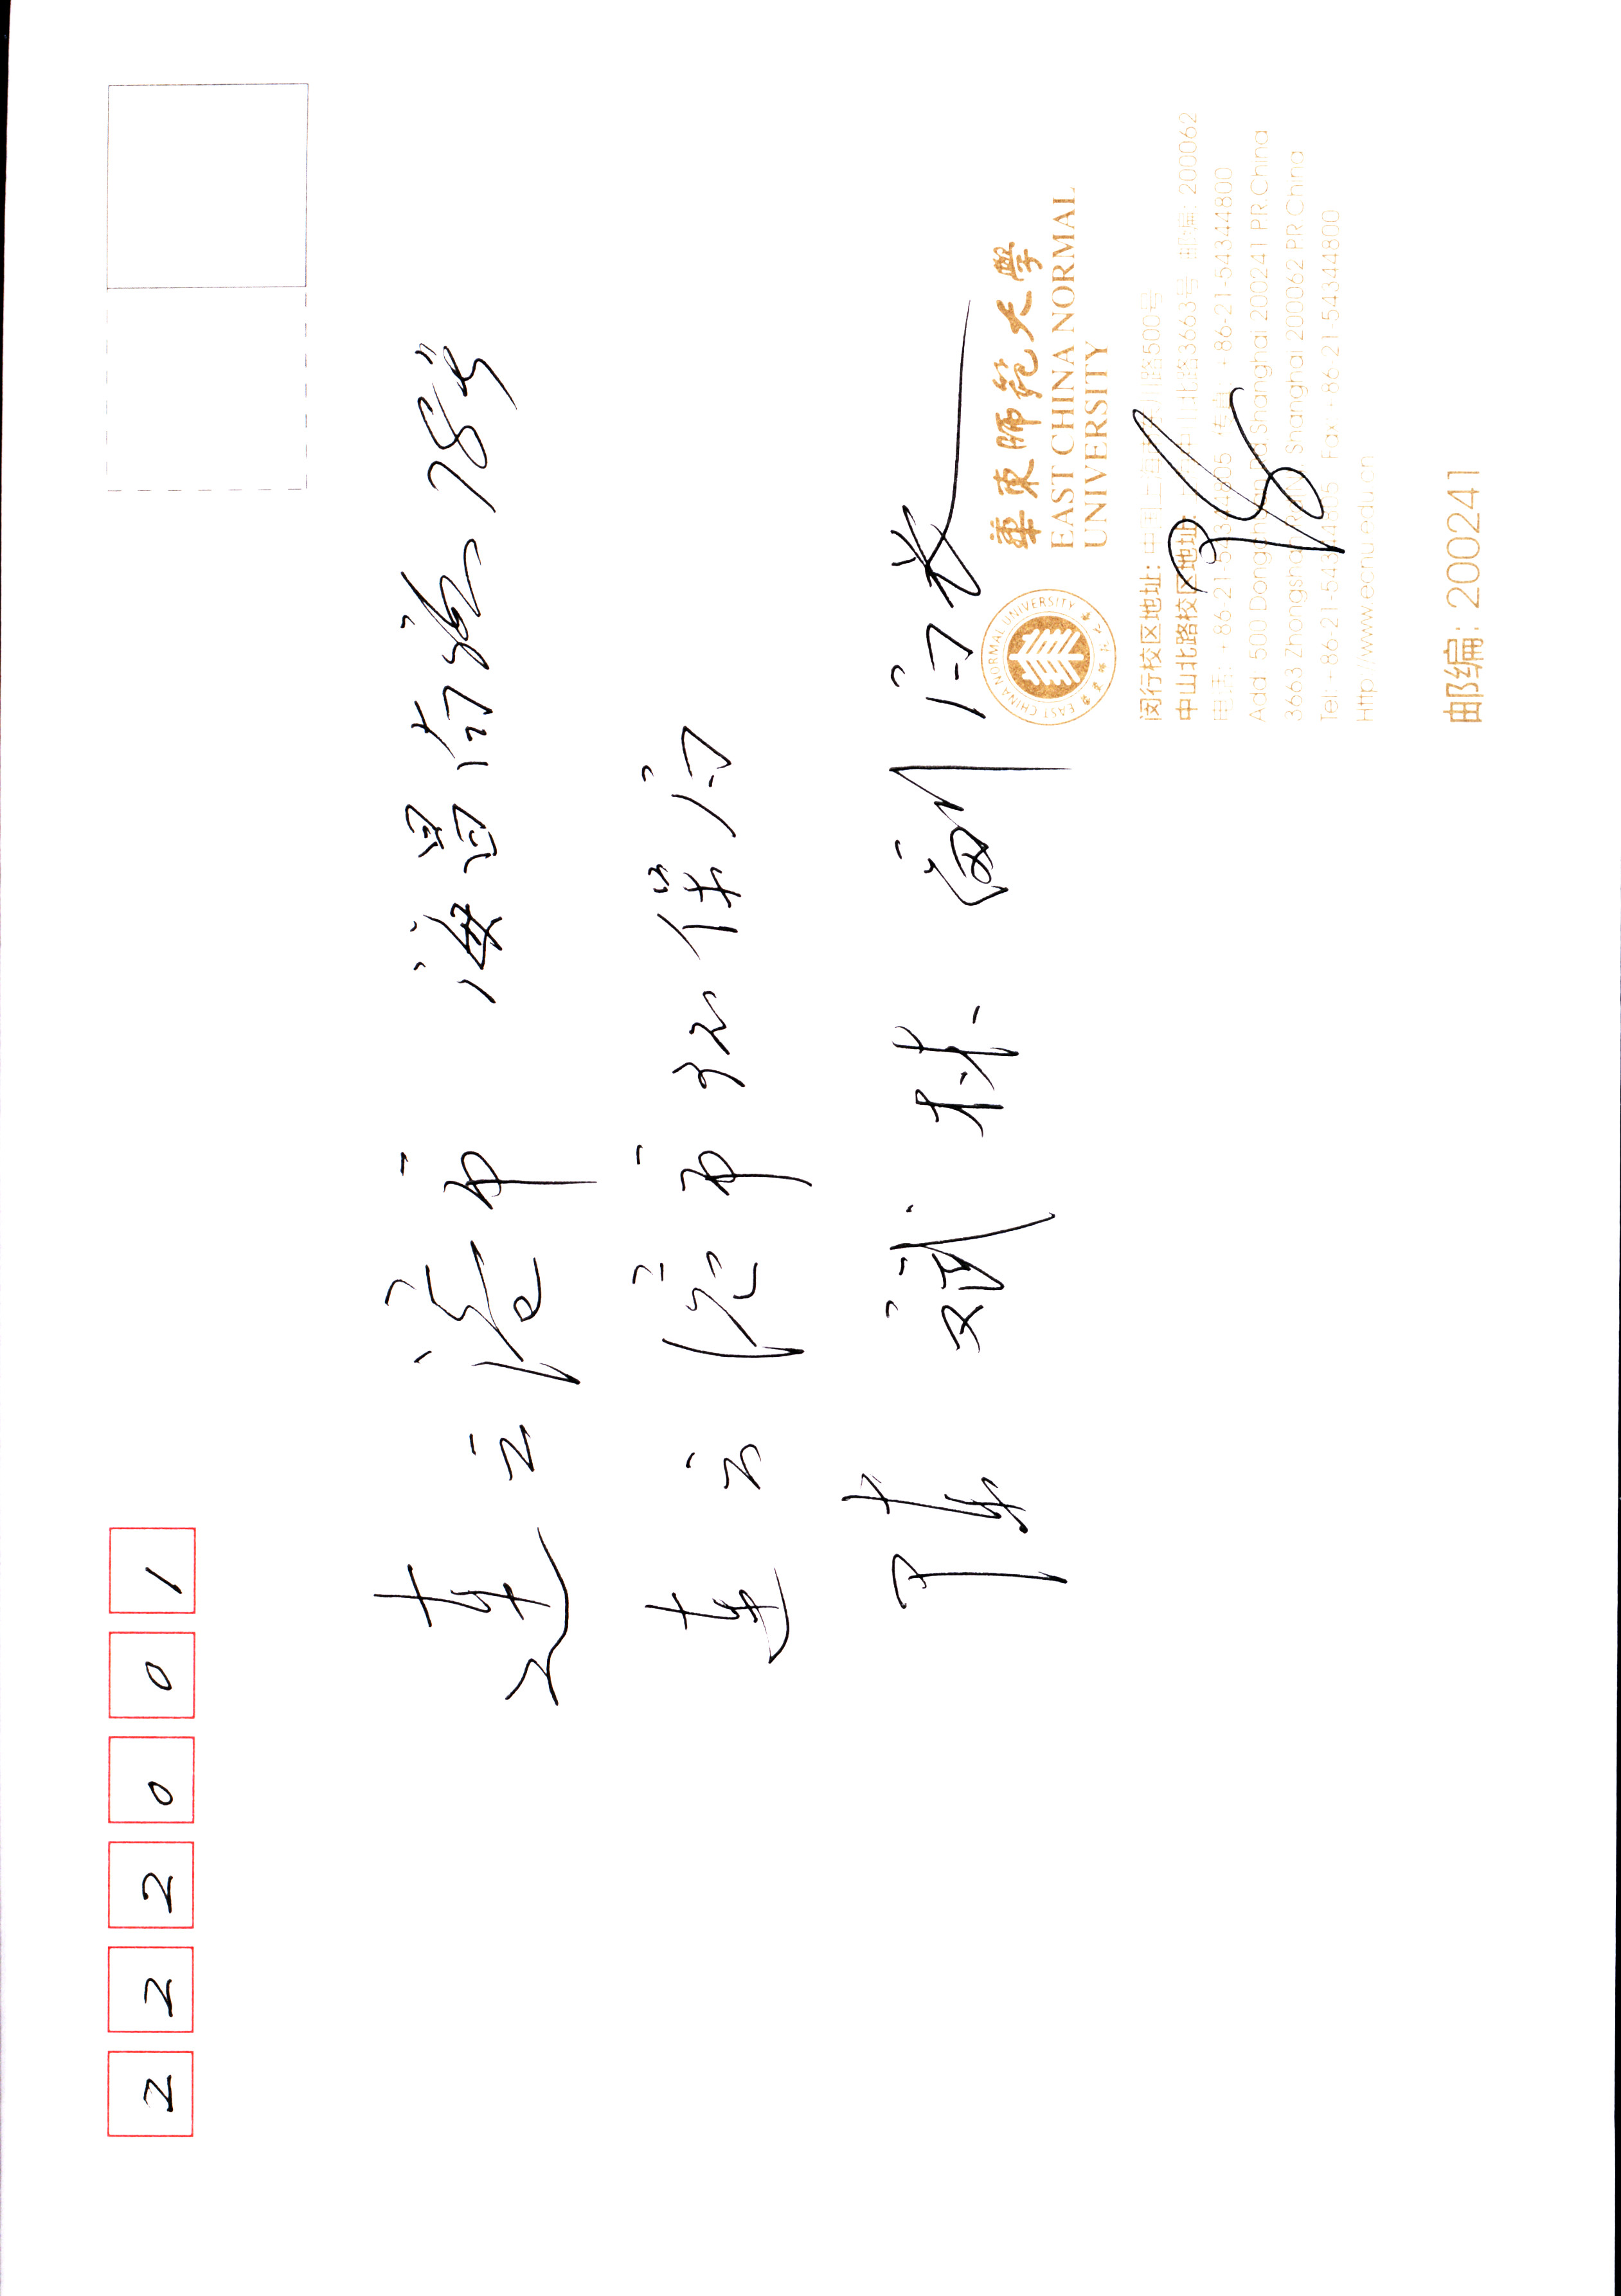 222001
连云港市 海昌南路78号
连云港市孔保局
陈斌林 副局长
華東師範大學
EAST CHINA NORMAL
UNIVERSITY
EAST CHINA NORMAL UNIVERSITY
闵行校区地址: 中国上海 500号
中山北路校区地址: 中山北路3663号 邮编: 200062
电话: +86-21-54344805 +86-21-54344800
Add 500 Dongchuan Rd Shanghai 200241 P.R.China
3663 Zhongshan Rd(N) Shanghai 200062 PR China
Tel: +86-21-54344805 Fax: +86-21-54344800
Http://www.ecnu.edu.cn
邮编: 200241